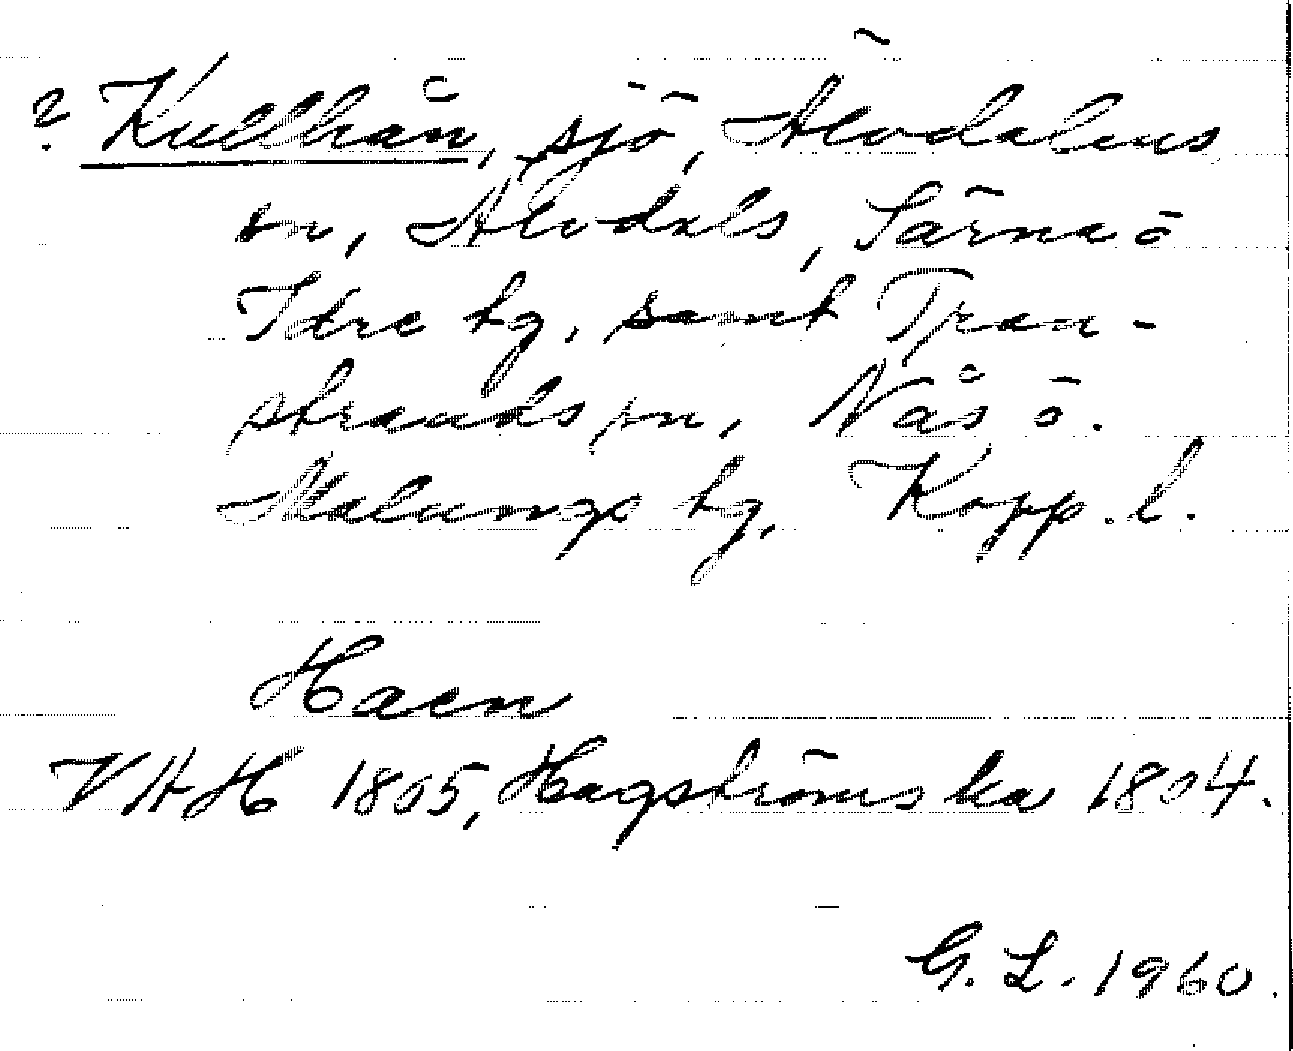 ? Kullhån, sjö, Älvdalens
sn, Älvdals, Särna o
Idre tg, samt Tran-
strands sn, Nås o.
Malungs tg, Kopp. l.
Haen
VHH 1805, Hagströmska 1804.
G. L. 1960.